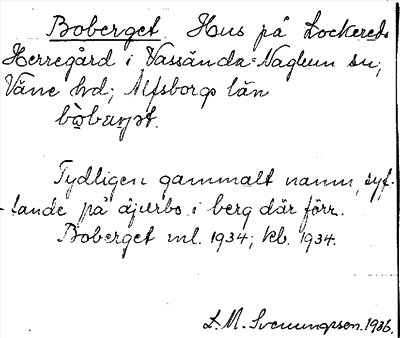 Boberget. Hus på Lockereds
Herregård i Vassända-Naglum sn;
Väne hd; Älfsborgs län
Tydligen gammalt namn, syf-
tande på djurbo i berg där förr.
Boberget ml. 1934; kb. 1934.
L. M. Svenungsson. 1936.